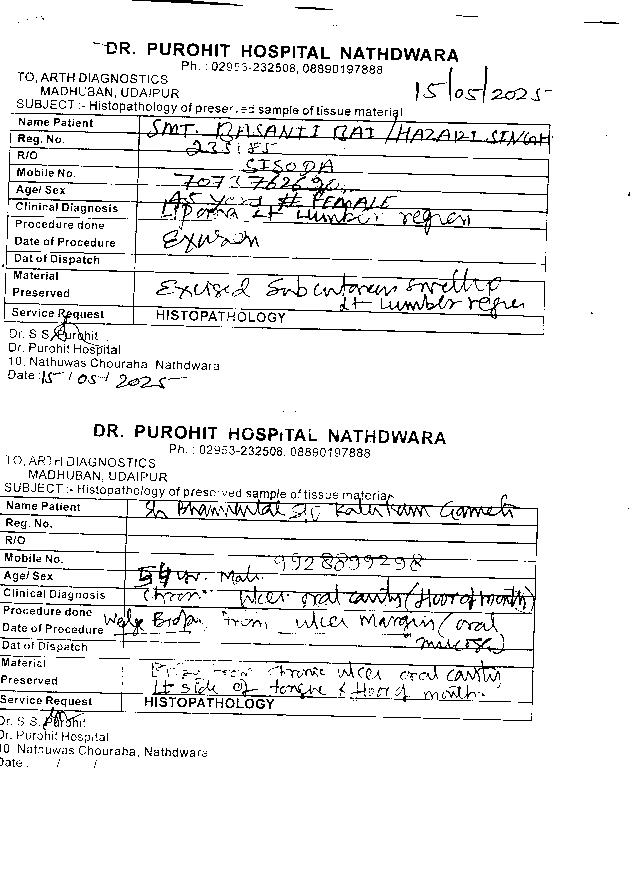 DR. PUROHIT HOSPITAL NATHDWARA
Ph. : 02953-232508, 08890197888
TO, ARTH DIAGNOSTICS
MADHUBAN, UDAIPUR
15/05/2025
SUBJECT :- Histopathology of preserved sample of tissue material
Name Patient SMT. BASANTI BAI / HAZARI SINGH
Reg. No. 235185
R/O SISODA
Mobile No.
Age/ Sex 45 year # FEMALE
Clinical Diagnosis Lipoma Lt Lumber region
Procedure done
Date of Procedure Excision
Dat of Dispatch
Material Excised Subcutaneous swelling
Preserved Lt Lumber region
Service Request HISTOPATHOLOGY
Dr. S S Purohit
Dr. Purohit Hospital
10, Nathuwas Chouraha Nathdwara
Date : 15 / 05 / 2025
DR. PUROHIT HOSPITAL NATHDWARA
Ph. : 02953-232508, 08890197888
TO, ARTH DIAGNOSTICS
MADHUBAN, UDAIPUR
SUBJECT :- Histopathology of preserved sample of tissue material
Name Patient Sh S/o Gameti
Reg. No.
R/O
Mobile No. 9928899298
Age/ Sex 54 yr. Male
Clinical Diagnosis Chronic ulcer oral cavity (floor of mouth)
Procedure done Wedge Biopsy from ulcer Margin (oral
Date of Procedure mucosa)
Dat of Dispatch
Material from chronic ulcer oral cavity
Preserved Lt side of tongue & floor of mouth
Service Request HISTOPATHOLOGY
Dr. S S. Purohit
Dr. Purohit Hospital
10 Nathuwas Chouraha, Nathdwara
Date : / /